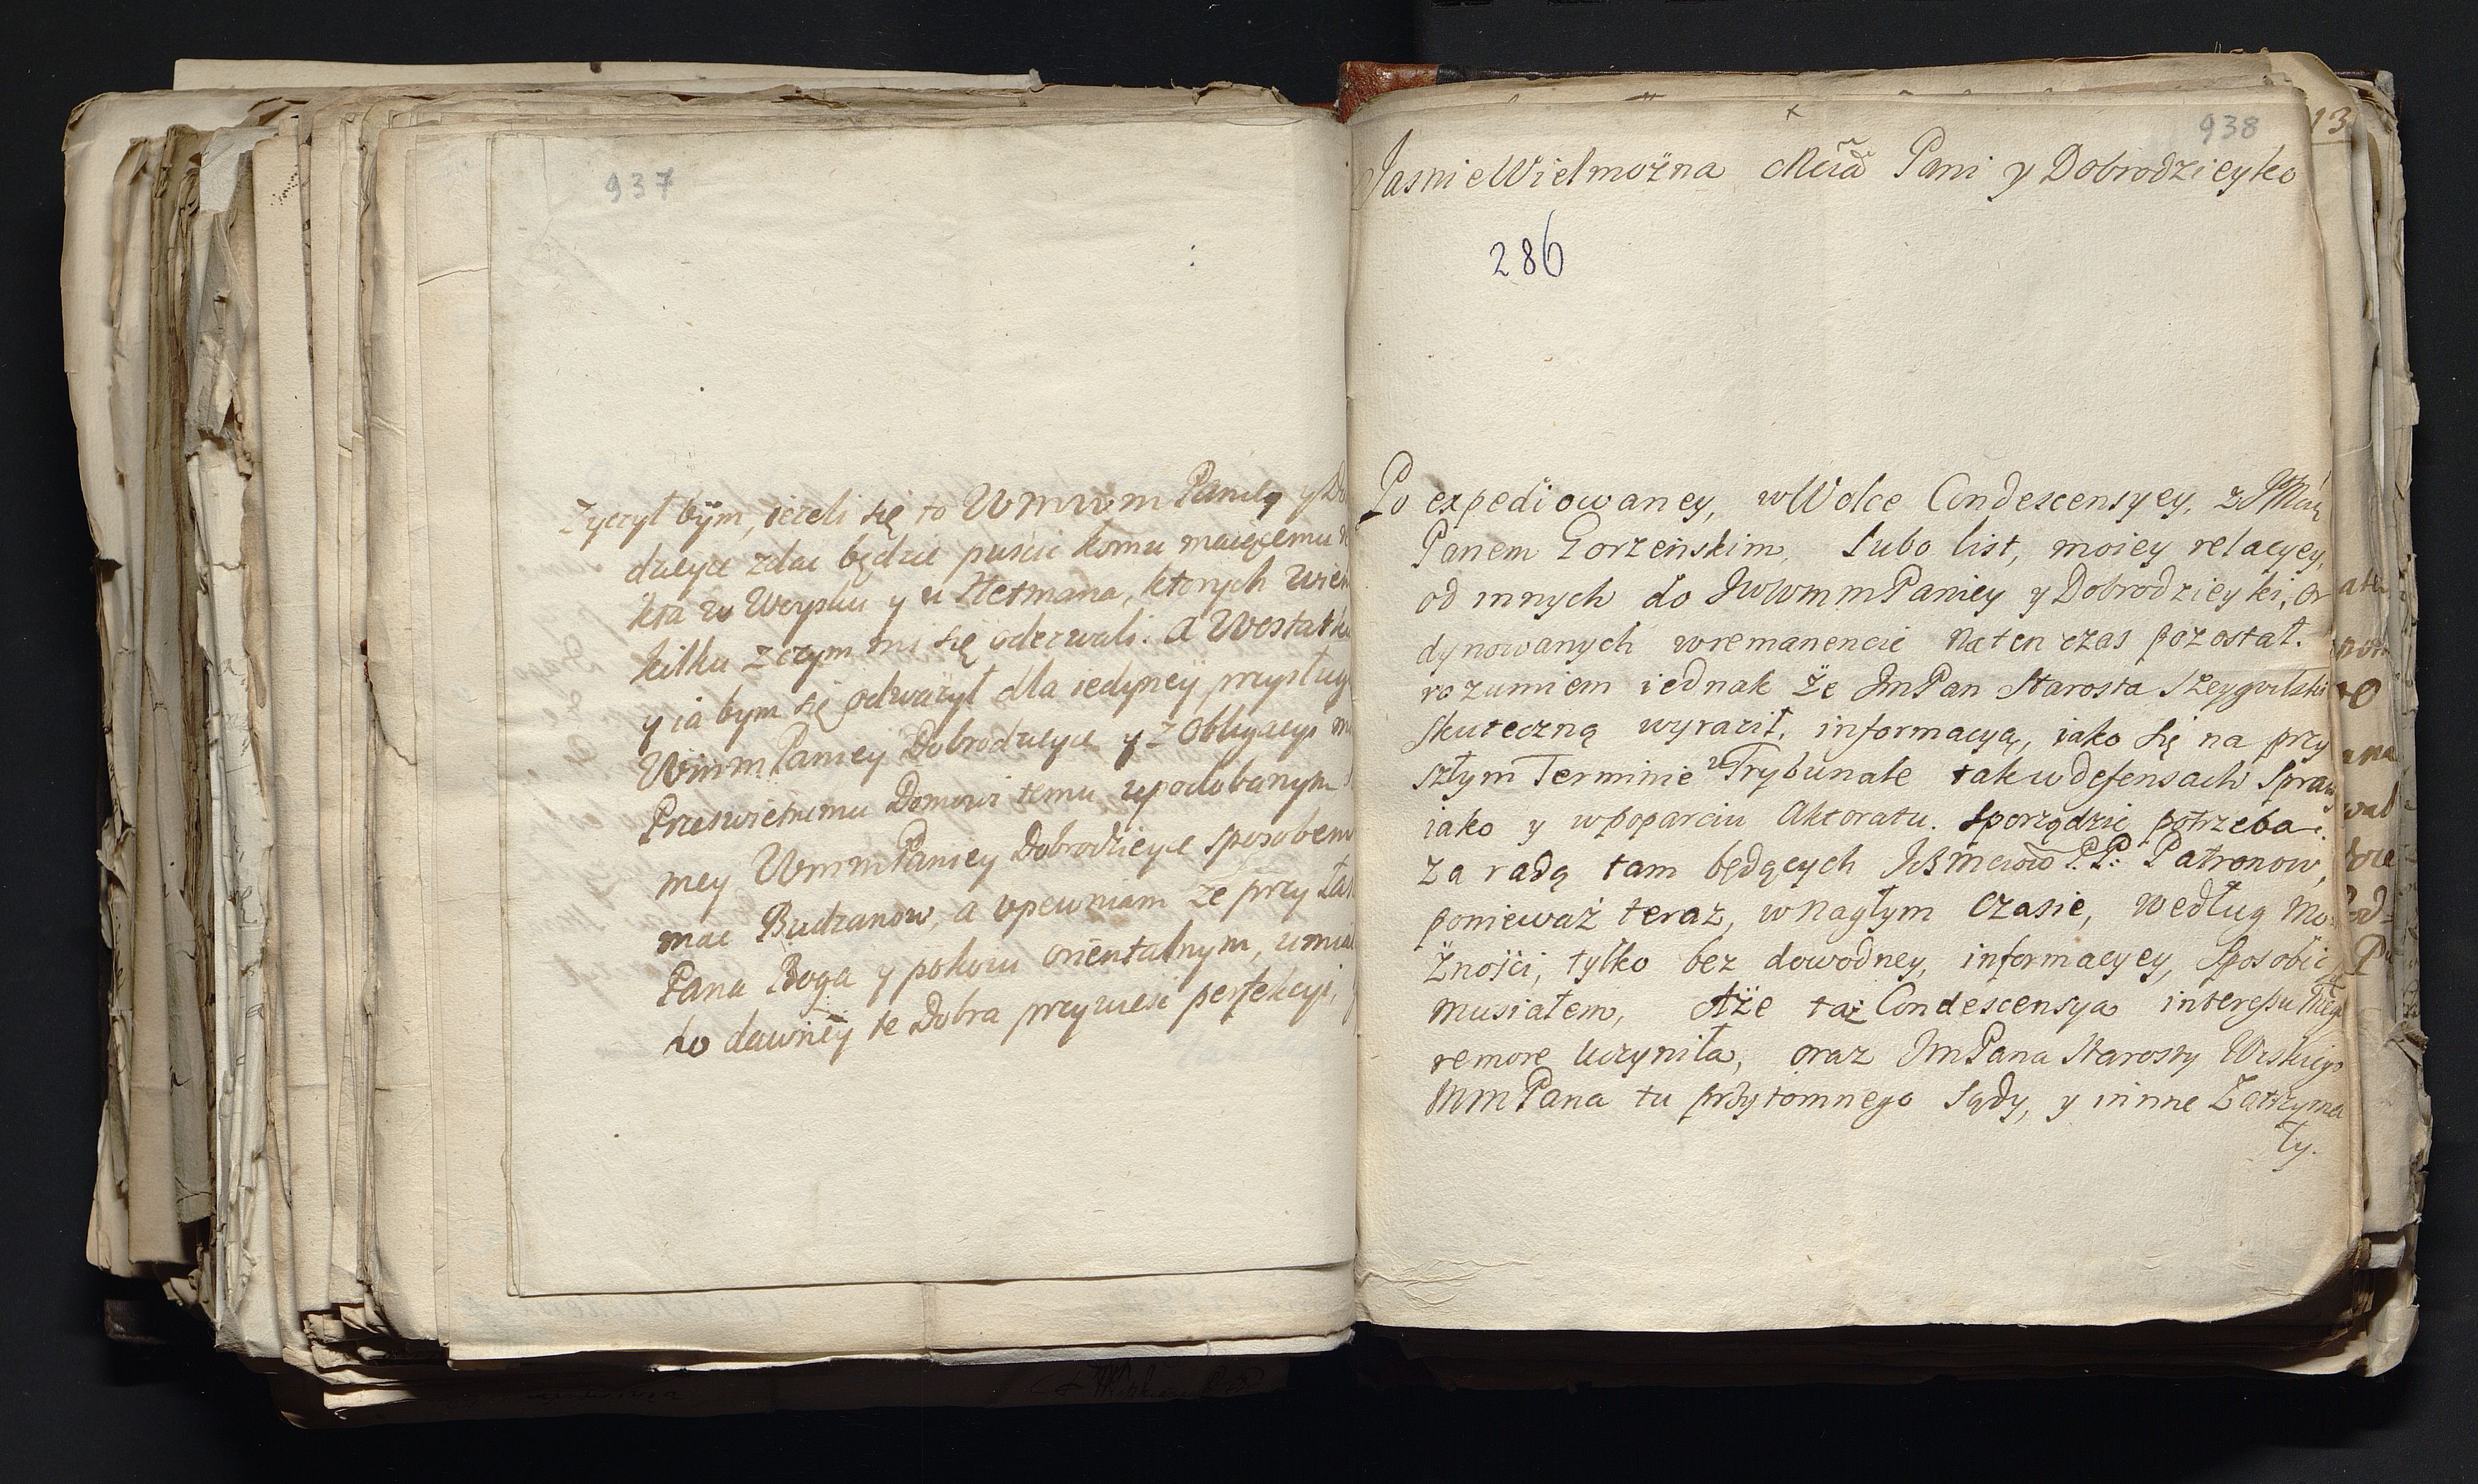 937
Zyczył bym, iezeli się to WmWm Paniey y
dzieyce zdac będzie puscic komu maiącemu
kta w Woysku y u Hetmana, ktorych Wiem
kilku z czym mi się oderwali. A Wostatku
y ia bym się odwazył dla iedyney przysługi
WmmPaniey Dobrodzieyce y z Obligacyi
Przeswietnemu Domowi temu upodobanym
mey WmmPaniey Dobrodzieyce sposobem
mac Budzanow, a upewniam ze przy
Pana Boga y pokoiu orientalnym,
do dawney te Dobra przywiesc perfekcyi,
938
13
JasnieWielmożna Mcia Pani y Dobrodzieyko
286
Po expediowaney, w Wolce Condescensyey, z
Panem Gorzeńskim, Lubo list, moiey relacyey,
od innych do JwWmmPaniey y Dobrodzieyki, or
dynowanych wremanencie naten czas pozostał.
rozumiem iednak że ImPan Starosta
skuteczną wyraził, informacyą, iako się na przy
szłym Terminie w Trybunale tak w defensach Spraw
iako y wpoparciu Aktoratu. sporządzic potrzeba.
Za radą tam będących PP: Patronow,
ponieważ teraz, wnagłym czasie, według mo
żności, tylko bez dowodney, informacyey, Sposobic
musiałem, Aże taż Condescensya interessu
remorę uczyniła, oraz ImPana Starosty Wiskiego
MmPana tu przytomnego Sądy, y inne Zatrzyma
ły.